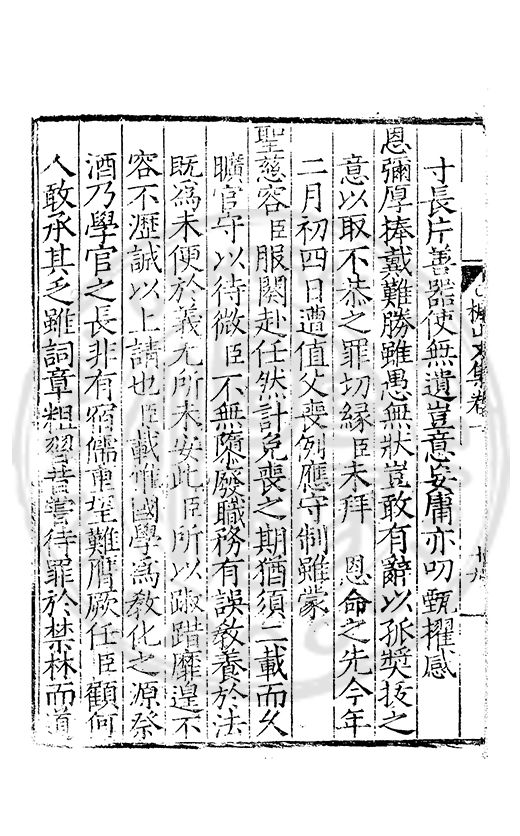 寸長片善器使無遺豈意妄庸亦叨甄擢感
恩彌厚捧戴難勝雖愚無狀豈敢有辭以孤獎拔之
意以取不恭之罪切緣臣未拜　恩命之先今年
二月初四日遭値父喪例應守制雖蒙
聖慈容臣服闋赴任然計免喪之期猶須二載而久
曠官守以待微臣不無隳廢職務有誤敎養於法
旣爲未便於義尤所未安此臣所以踧踖靡遑不
容不瀝誠以上請也臣載惟國學爲敎化之源祭
酒乃學官之長非有宿儒重望難膺厥任臣顧何
人敢承其乏雖詞章粗習昔嘗待罪於禁林而道
文集卷